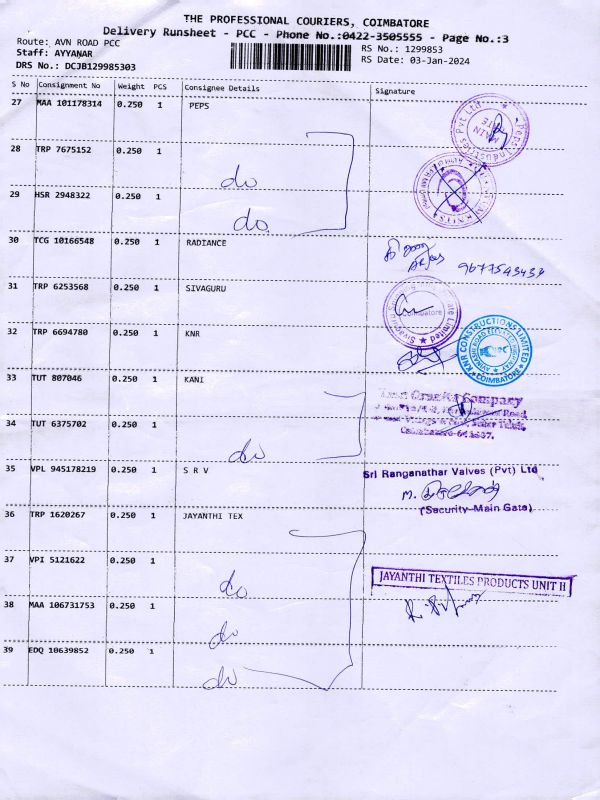 THE PROFESSIONAL COURIERS, COIMBATORE
Delivery Runsheet - PCC - Phone No.:0422-3505555 - Page No.:3
Route: AVN ROAD PCC
RS No.: 1299853
Staff: AYYANAR
RS Date: 03-Jan-2024
DRS No.: DCJB129985303
S No Consignment No Weight PCS Consignee Details Signature
27 MAA 101178314 0.250 1 PEPS
Peps Industries Pvt Ltd
MAIN GATE
28 TRP 7675152 0.250 1 do
29 HSR 2948322 0.250 1 do
30 TCG 10166548 0.250 1 RADIANCE
9677543434
31 TRP 6253568 0.250 1 SIVAGURU
Coimbatore
32 TRP 6694780 0.250 1 KNR
KNR CONSTRUCTIONS LIMITED
COIMBATORE
33 TUT 807046 0.250 1 KANI
Company
34 TUT 6375702 0.250 1 do
35 VPL 945178219 0.250 1 S R V
Sri Ranganathar Valves (Pvt) Ltd
M.
(Security-Main Gate)
36 TRP 1620267 0.250 1 JAYANTHI TEX
37 VPI 5121622 0.250 1 do
JAYANTHI TEXTILES PRODUCTS UNIT II
38 MAA 106731753 0.250 1 do
39 EDQ 10639852 0.250 1 do